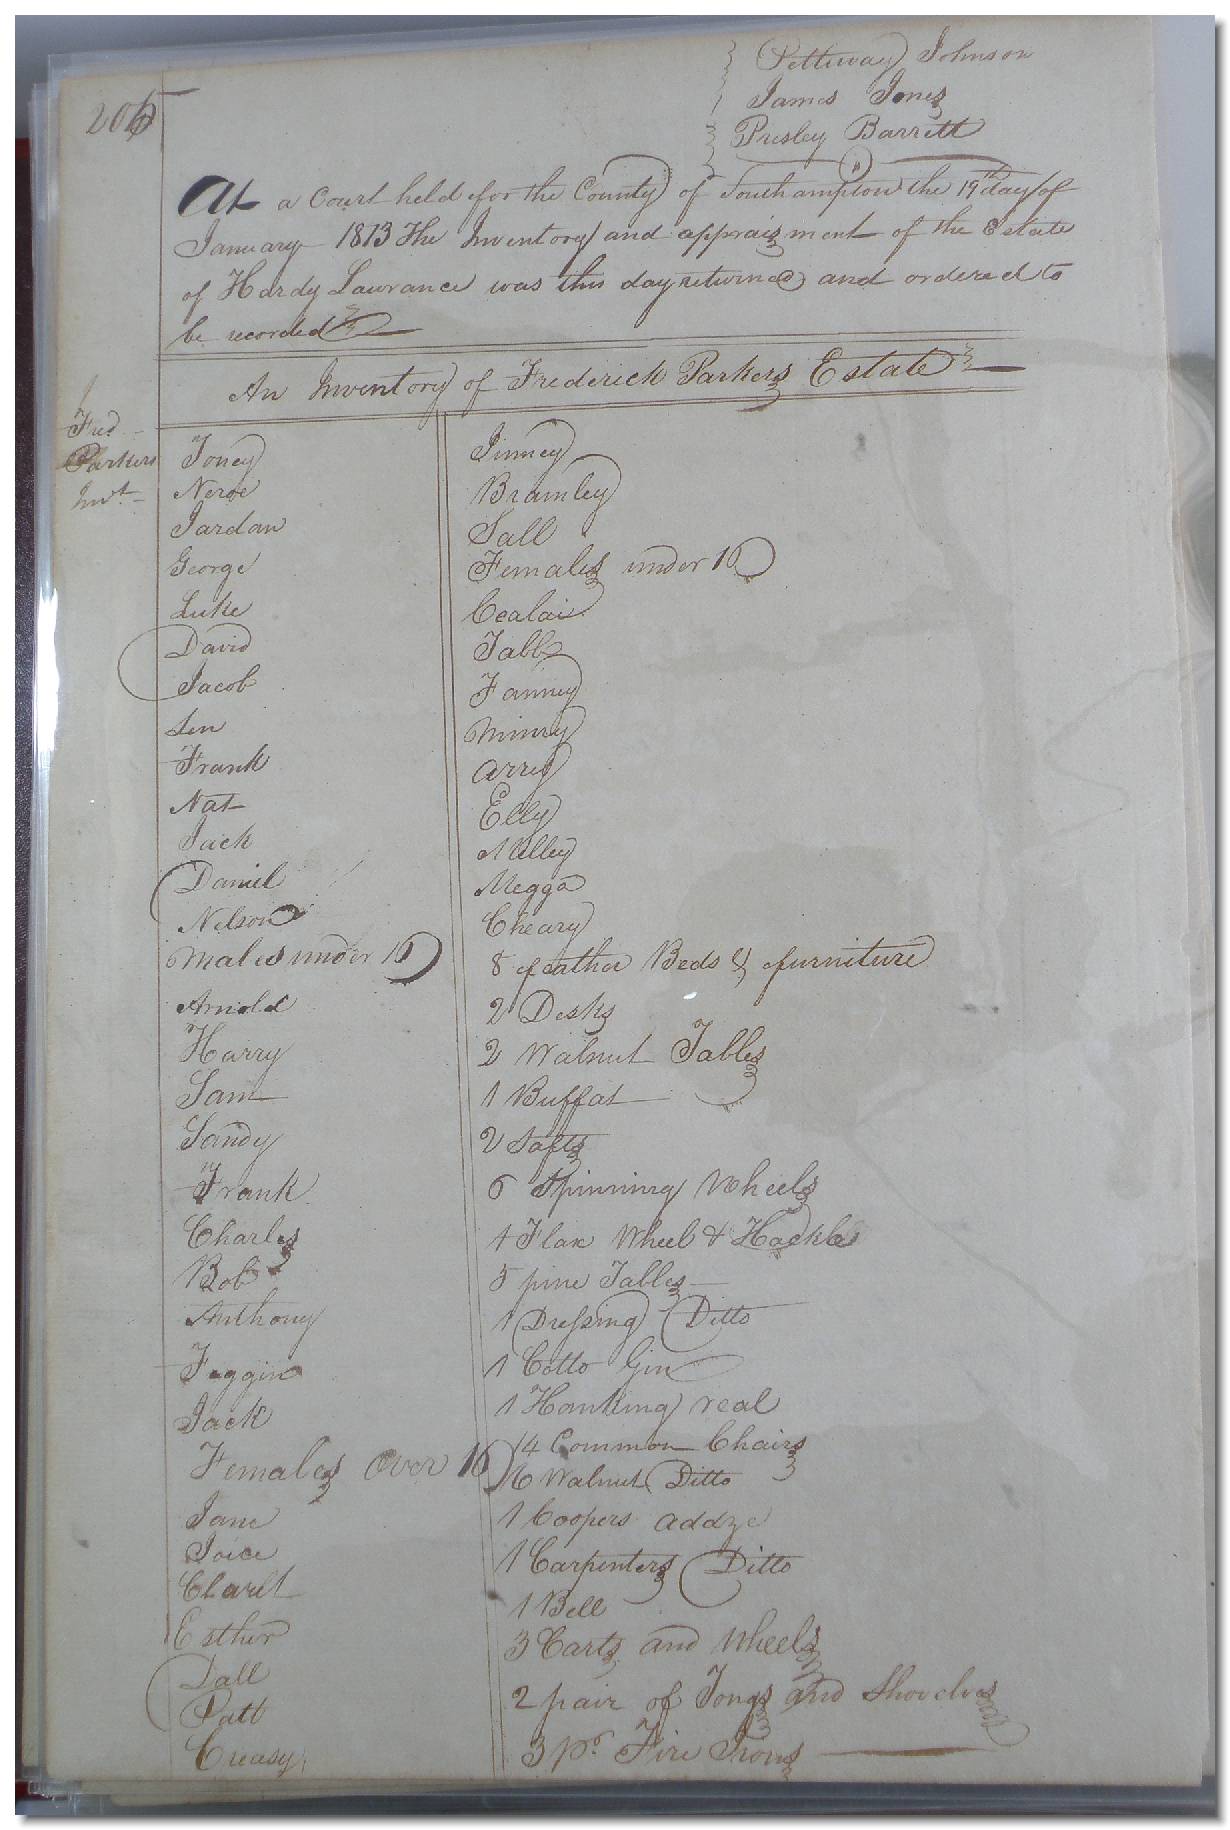 206
Pettway Johnson
James Jones
Presley Barrett
At a Court held for the County of Southampton the 19th day of
January 1813 The Inventory and appraisment of the Estate
of Hardy Lawrance was this day returned and ordered to
be recorded
An Inventory of Frederick Parkers Estate
Fred
Parkers
Invt
Toney
Neroe
Jardan
George
Luke
David
Jacob
Sen
Frank
Nat
Jack
Daniel
Nelson
Males under 16
Arnold
Harry
Sam
Sandy
Frank
Charles
Bob
Anthony
Faggin
Jack
Females over 16
Jane
Joice
Clarit
Esther
Dall
Patt
Creasy
Jinney
Bramley
Sall
Females under 16
Cealai
Tabb
Fanney
Minny
Arrey
Elly
Milley
Megga
Cheary
8 feather Beds & furniture
2 Desks
2 Walnut Tables
1 Buffat
2 Safts
6 Spinning Wheels
1 Flax Wheel & Hackle
5 pine Tables
1 Dressing Ditto
1 Cotto Gin
1 Hanking real
14 Common Chairs
6 Walnut Ditto
1 Coopers addze
1 Carpenters Ditto
1 Bell
3 Carts and Wheels
2 pair of Tongs and Shovels
3 pr. Fire Irons